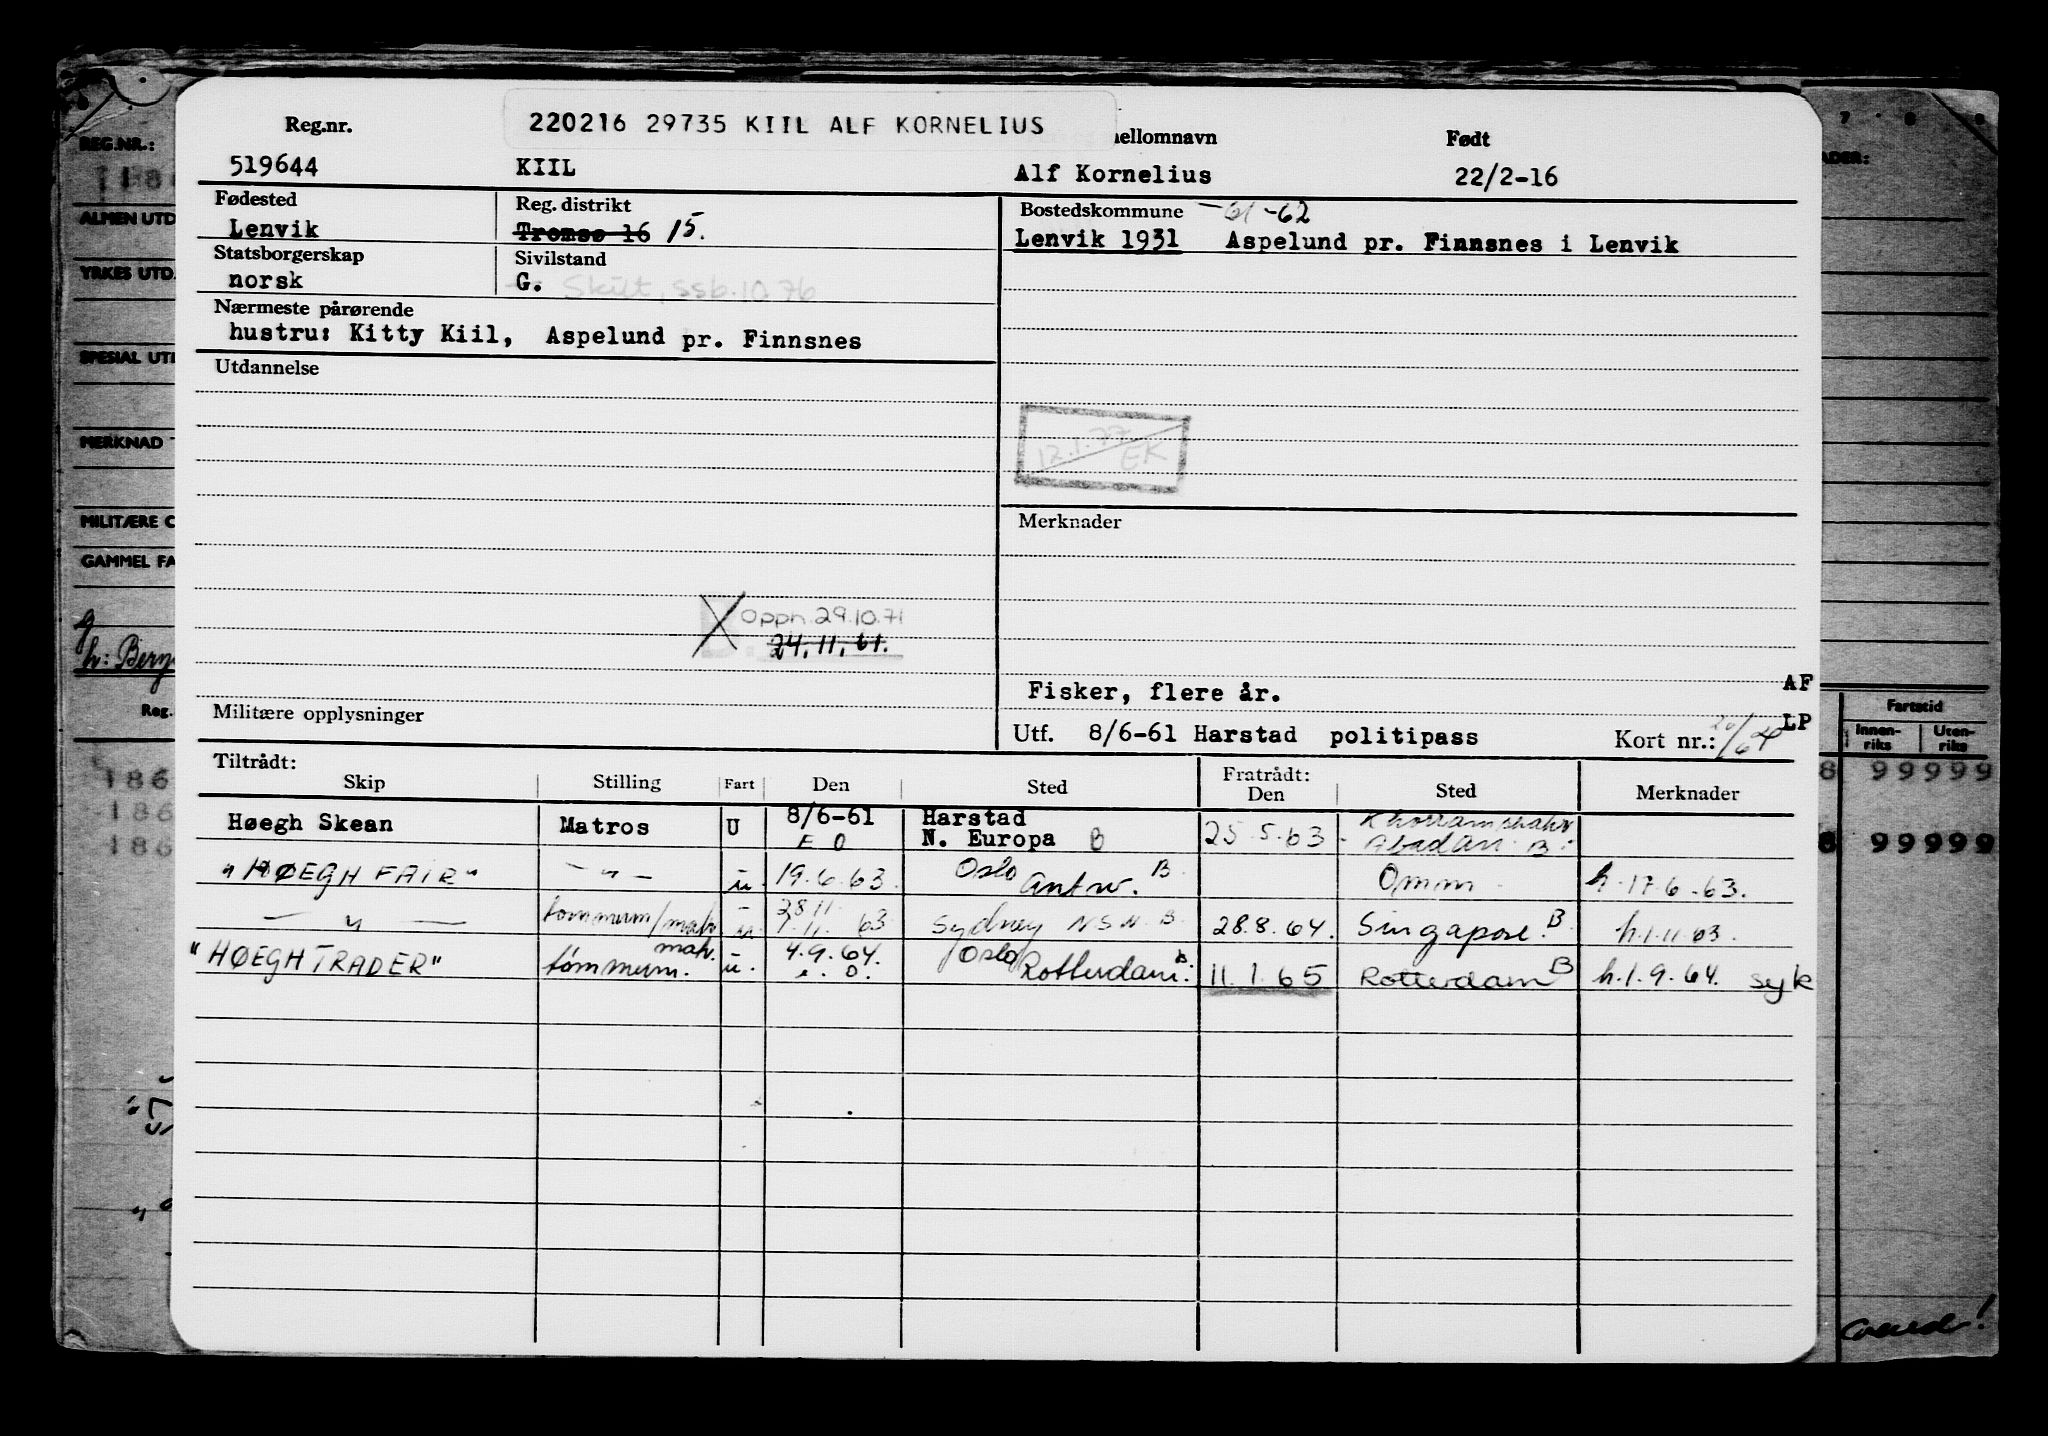 220216 29735 KIIL ALF KORNELIUS
Reg.nr.
ellomnavn
Født
519644
KIIL
Alf Kornelius
22/2-16
Fødested
Reg. distrikt
Bostedskommune -61 -62
Lenvik
Tromsø 16 15.
Lenvik 1931 Aspelund pr. Finnsnes i Lenvik
Statsborgerskap
Sivilstand
norsk
G. Skilt, ssb.10.76
Nærmeste pårørende
hustru: Kitty Kiil, Aspelund pr. Finnsnes
Utdannelse
17.1.77
EK
Merknader
Oppn. 29.10.71
24.11.61.
Fisker, flere år.
AF
Militære opplysninger
LP
Utf. 8/6-61 Harstad politipass
Kort nr.:
Tiltrådt:
Skip
Stilling
Fart
Den
Sted
Fratrådt:
Den
Sted
Merknader
Høegh Skean Matros U 8/6-61 Harstad
E O N. Europa B 25.5.63 Khorramshahr
Abadan B.
"HØEGH FAIR" - " - u. 19.6.63. Oslo
Antw. B. Omm. h. 17.6.63.
- " - tømmerm/matr. u. 28.11.
1.11.63 Sydney N.S.W. B. 28.8.64. Singapore B. h.1.11.63.
"HØEGH TRADER" matr.
tømmerm. u. 4.9.64.
e. O. Oslo
Rotterdam B. 11.1.65 Rotterdam B h.1.9.64. syk
REG.NR.:
ALMEN UTD
YRKES UTD.
SPESIAL UT
MERKNAD
MILITÆRE
GAMMEL FA
h: Berg
Reg.
186
186
186
Fartstid
Innen-
riks
Uten-
riks
8 99999
8 99999